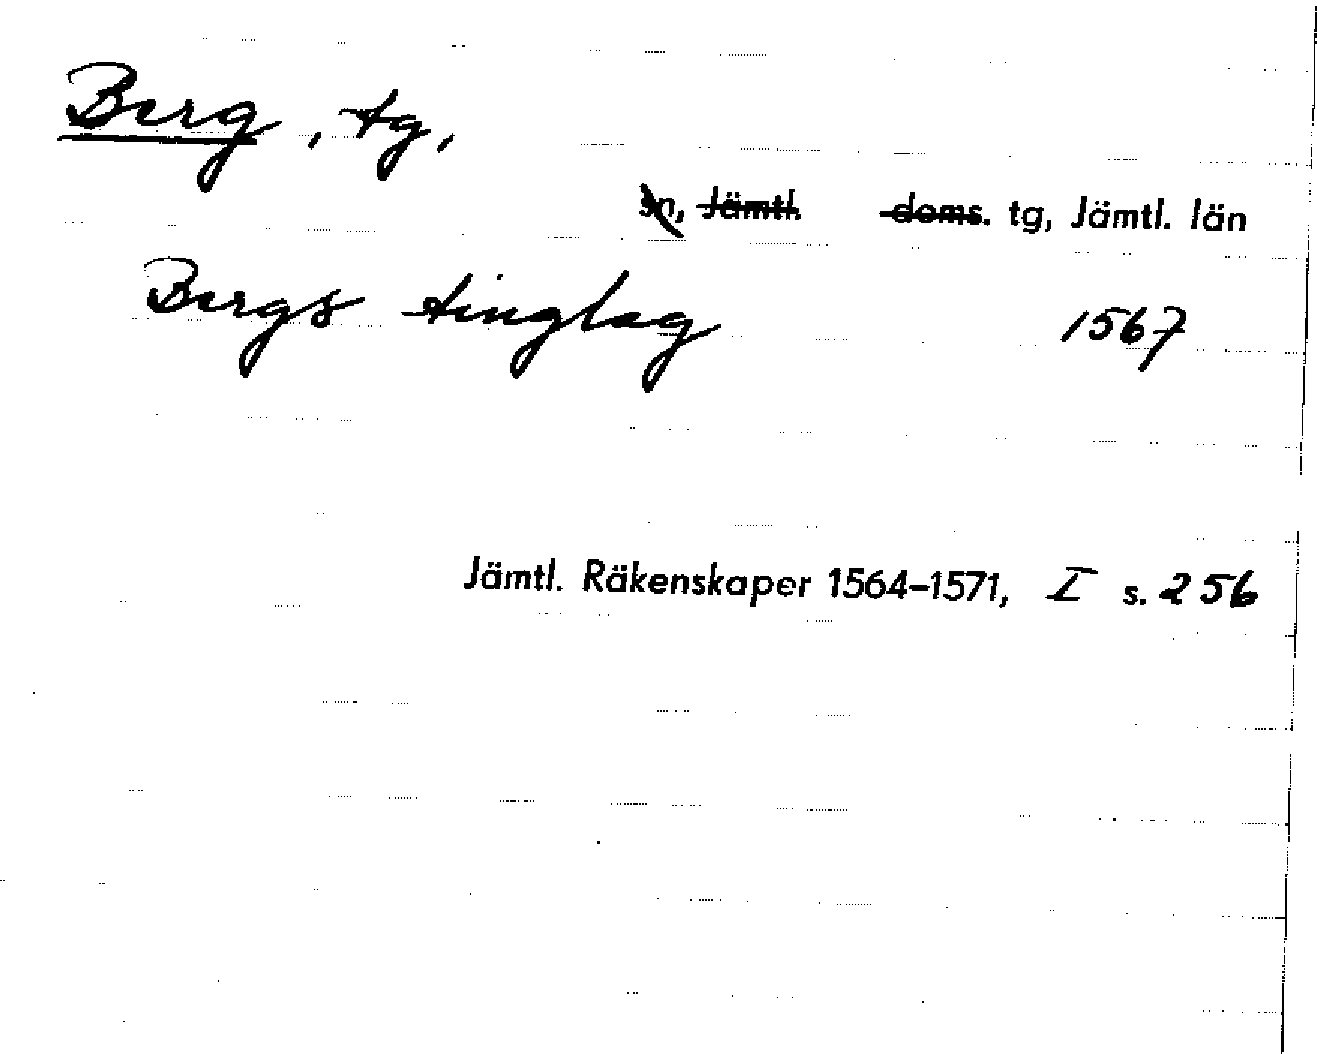 Berg, tg,
sn, Jämtl. doms. tg, Jämtl. län
Bergs tinglag 1567
Jämtl. Räkenskaper 1564–1571, I s. 256